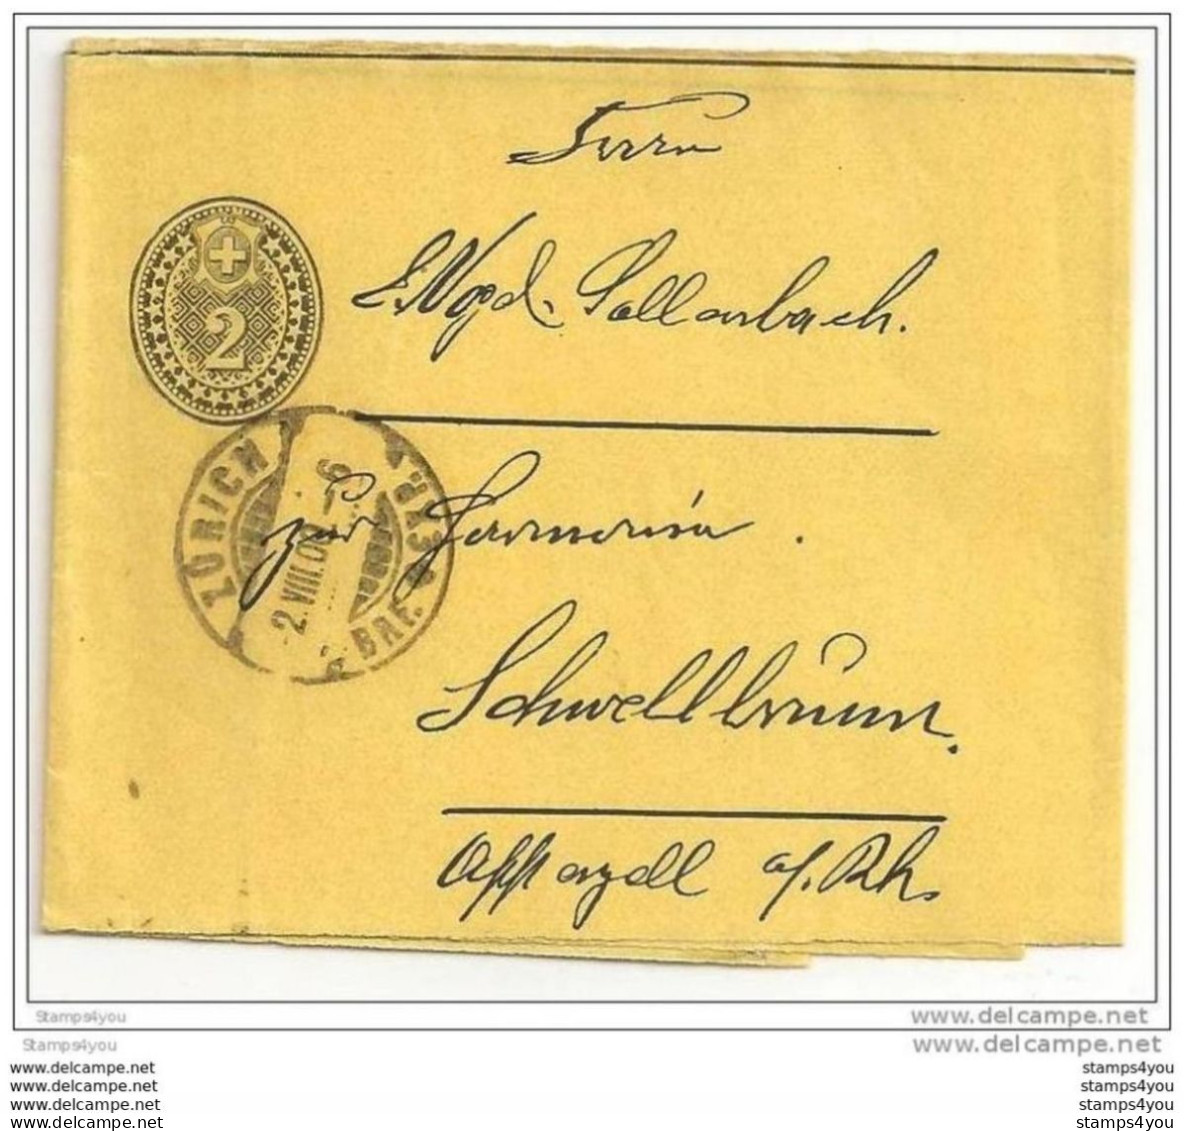 Herrn
2
E. Vogd. Sallenbach.
ZÜRICH
2.VIII.09.–6
BRF. EXP.
zur Harmonie.
Schwellbrunn.
Appenzell a/. Rh.
Stamps4you www.delcampe.net
Stamps4you www.delcampe.net
www.delcampe.net stamps4you
www.delcampe.net stamps4you
www.delcampe.net stamps4you
www.delcampe.net stamps4you